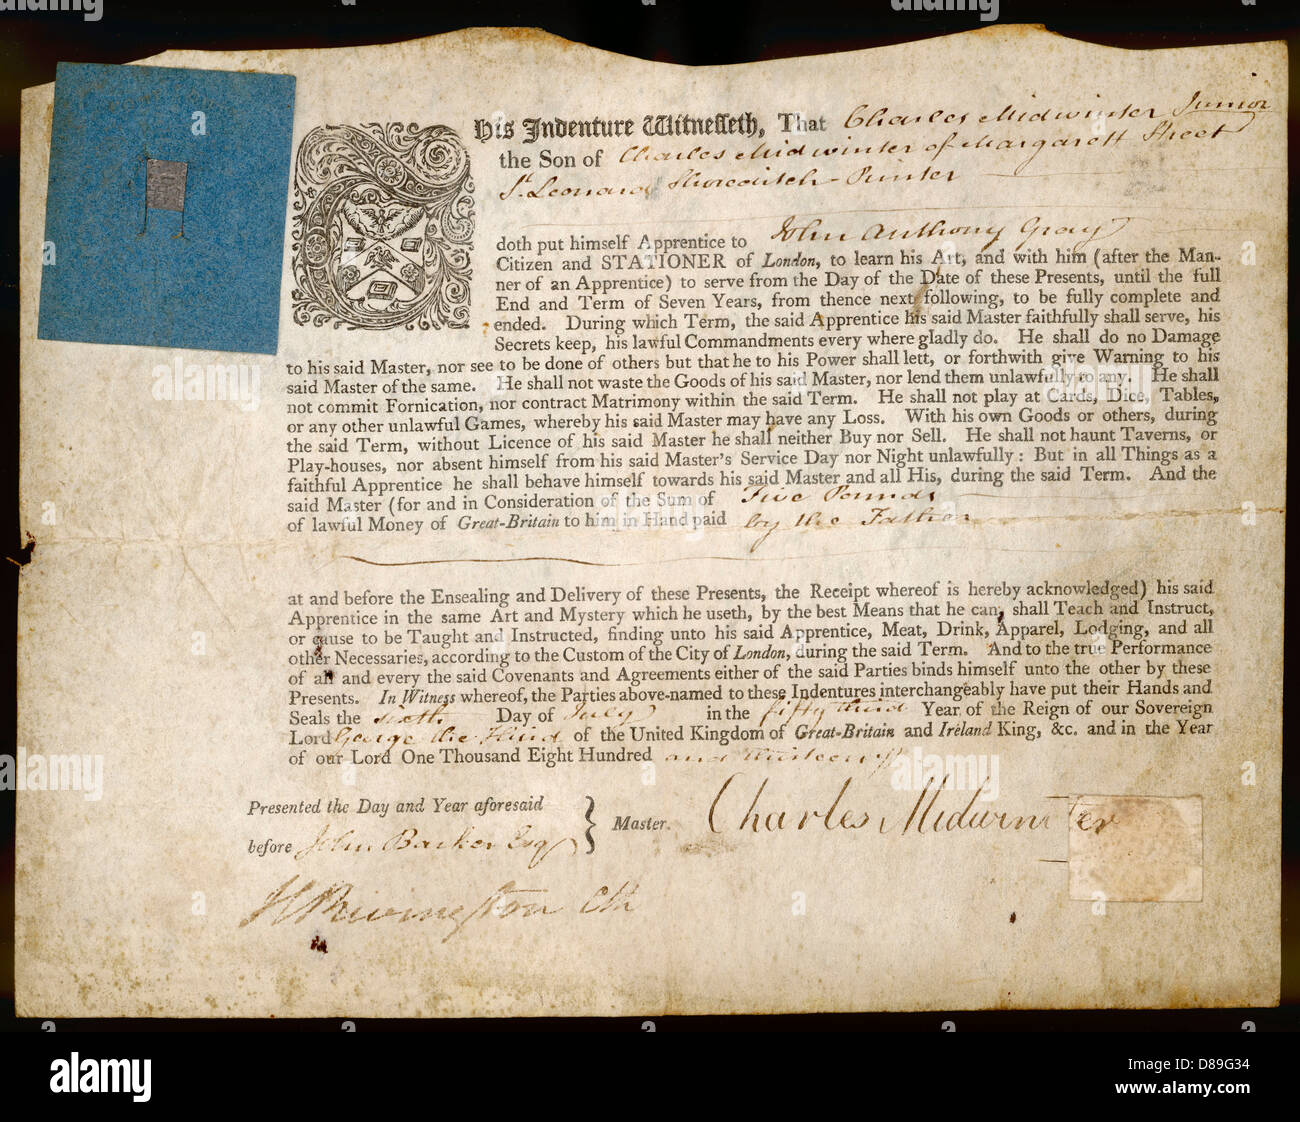 his Indenture Witnesseth, That Charles Midwinter Junior
the Son of Charles Midwinter of Margarett Street
St. Leonard Shoreditch - Printer
doth put himself Apprentice to John Anthony Gray
Citizen and STATIONER of London, to learn his Art, and with him (after the Man-
ner of an Apprentice) to serve from the Day of the Date of these Presents, until the full
End and Term of Seven Years, from thence next following, to be fully complete and
ended. During which Term, the said Apprentice his said Master faithfully shall serve, his
Secrets keep, his lawful Commandments every where gladly do. He shall do no Damage
to his said Master, nor see to be done of others but that he to his Power shall lett, or forthwith give Warning to his
said Master of the same. He shall not waste the Goods of his said Master, nor lend them unlawfully to any. He shall
not commit Fornication, nor contract Matrimony within the said Term. He shall not play at Cards, Dice, Tables,
or any other unlawful Games, whereby his said Master may have any Loss. With his own Goods or others, during
the said Term, without Licence of his said Master he shall neither Buy nor Sell. He shall not haunt Taverns, or
Play-houses, nor absent himself from his said Master's Service Day nor Night unlawfully: But in all Things as a
faithful Apprentice he shall behave himself towards his said Master and all His, during the said Term. And the
said Master (for and in Consideration of the Sum of Five Pounds
of lawful Money of Great-Britain to him in Hand paid by the Father
at and before the Ensealing and Delivery of these Presents, the Receipt whereof is hereby acknowledged) his said
Apprentice in the same Art and Mystery which he useth, by the best Means that he can, shall Teach and Instruct,
or cause to be Taught and Instructed, finding unto his said Apprentice, Meat, Drink, Apparel, Lodging, and all
other Necessaries, according to the Custom of the City of London, during the said Term. And to the true Performance
of all and every the said Covenants and Agreements either of the said Parties binds himself unto the other by these
Presents. In Witness whereof, the Parties above-named to these Indentures interchangeably have put their Hands and
Seals the sixth Day of July in the fifty third Year of the Reign of our Sovereign
Lord George the Third of the United Kingdom of Great-Britain and Ireland King, &c. and in the Year
of our Lord One Thousand Eight Hundred and thirteen
Presented the Day and Year aforesaid
before John Barker Esq
Master.
Charles Midwinter
H Rivington Clk
alamy
D89G34
www.alamy.com